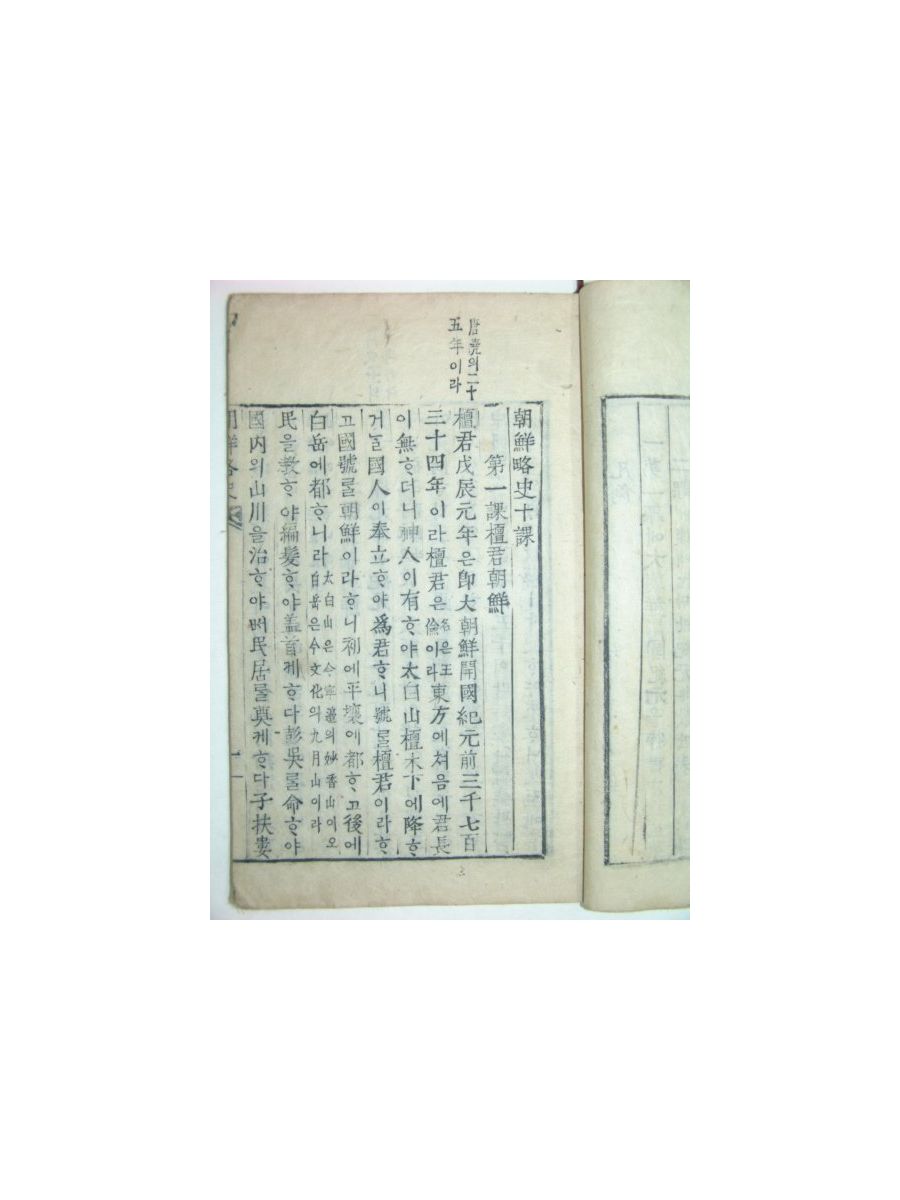 唐堯의二十
五年이라
朝鮮略史十課
第一課檀君朝鮮
檀君戊辰元年은即大朝鮮開國紀元前三千七百
三十四年이라檀君은名은王儉이라東方에쳐음에君長
이無ᄒᆞ더니神人이有ᄒᆞ야太白山檀木下에降ᄒᆞ
거ᄂᆞᆯ國人이奉立ᄒᆞ야爲君ᄒᆞ니號ᄅᆞᆯ檀君이라ᄒᆞ
고國號ᄅᆞᆯ朝鮮이라ᄒᆞ니初에平壤에都ᄒᆞ고後에
白岳에都ᄒᆞ니라太白山은今寧邊의妙香山이오白岳은今文化의九月山이라
民을敎ᄒᆞ야編髮ᄒᆞ야盖首케ᄒᆞ다彭吳ᄅᆞᆯ命ᄒᆞ야
國內의山川을治ᄒᆞ야ᄡᅥ民居ᄅᆞᆯ奠케ᄒᆞ다子扶婁
朝鮮略史
凡例